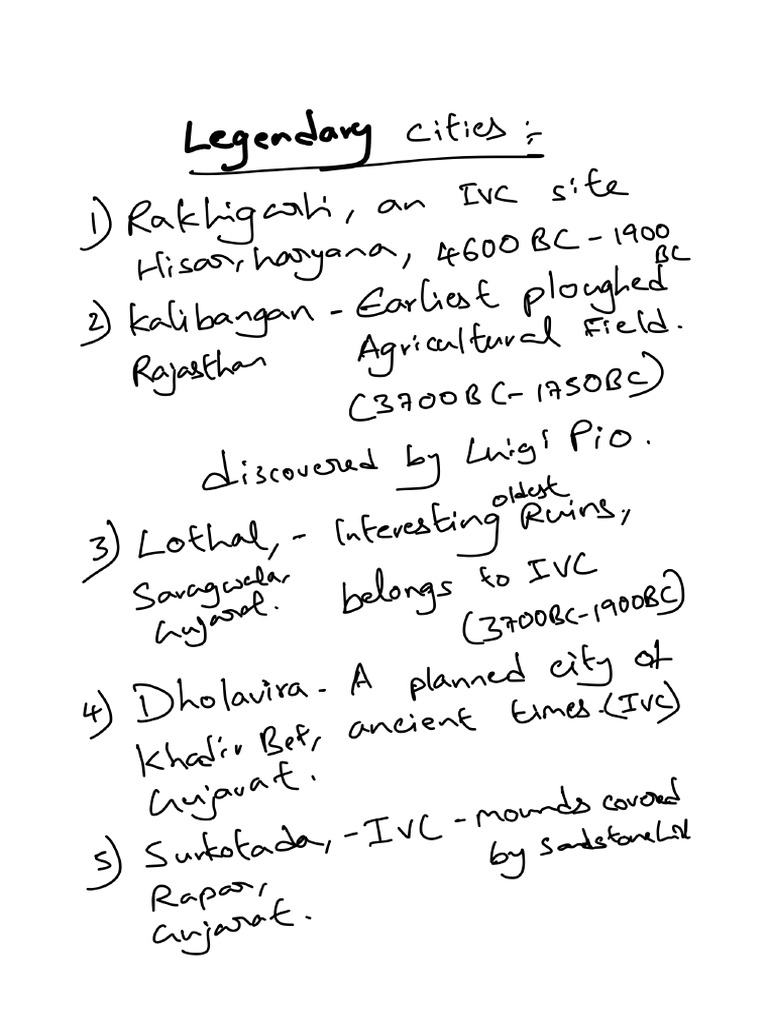 Legendary cities :-
1) Rakhigarhi, an IVC site
Hisar, haryana, 4600 BC - 1900 BC
2) Kalibangan - Earliest ploughed
Rajasthan Agricultural Field.
(3700BC - 1750BC)
discovered by Luigi Pio.
3) Lothal, - Interesting oldest Ruins,
Saragwala, belongs to IVC
Gujarat. (3700BC-1900BC)
4) Dholavira - A planned city of
Khadir Bet, ancient times. (IVC)
Gujarat.
5) Surkotada, - IVC - mounds covered
by Sandstone
Rapar,
Gujarat.